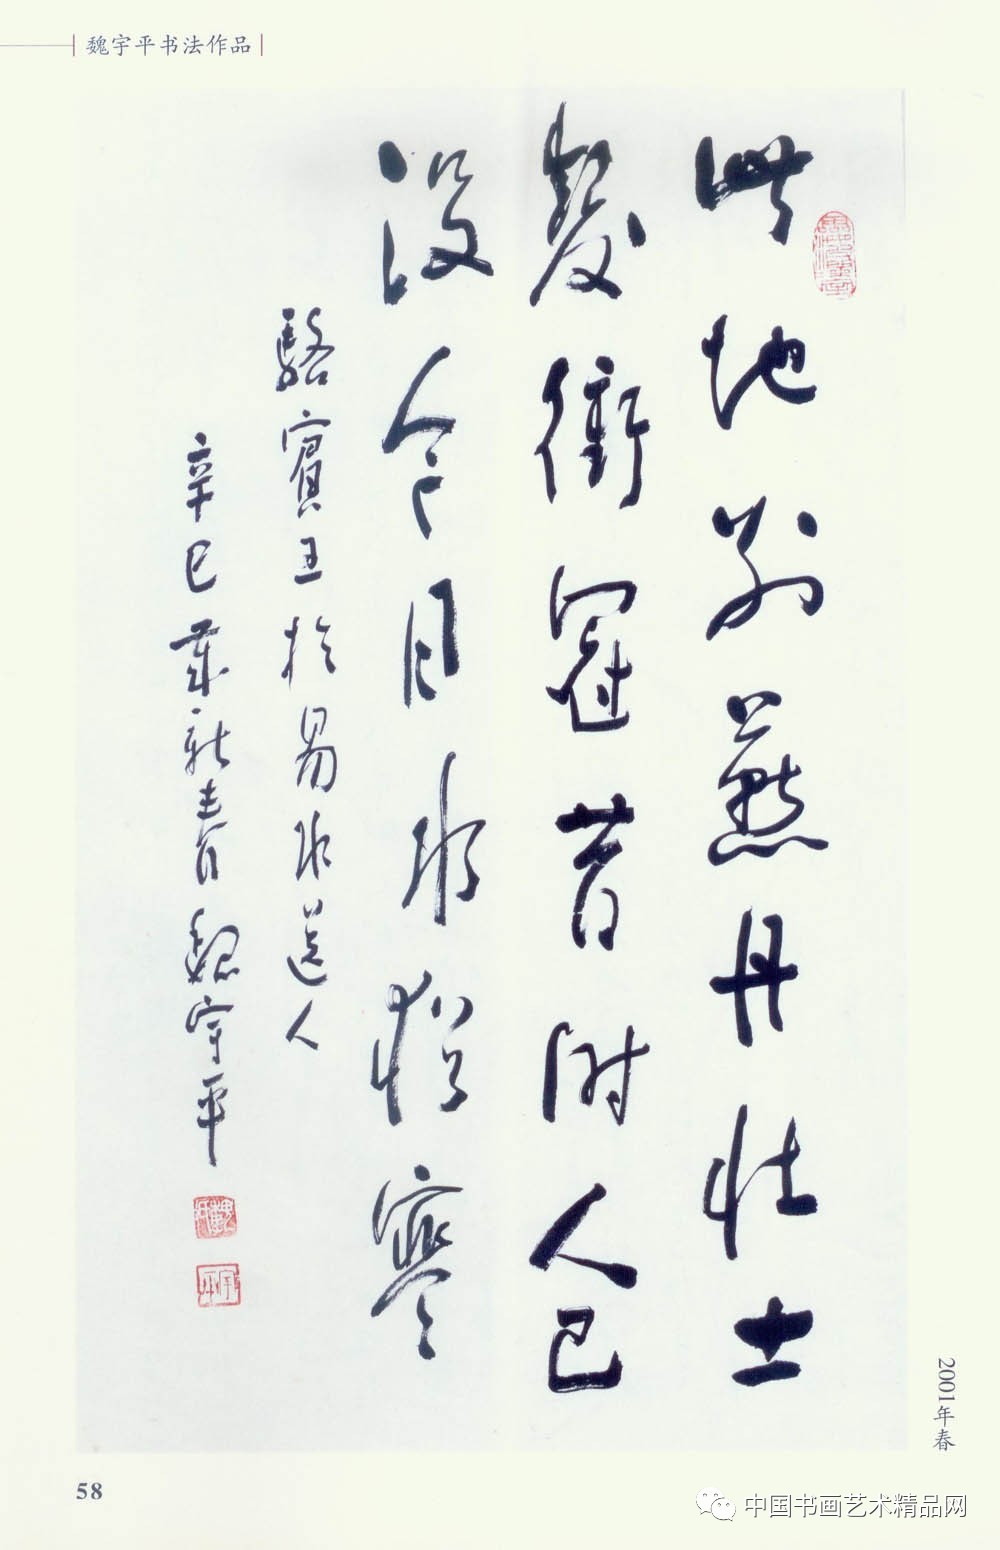 魏宇平书法作品
此地别燕丹壮士
髪衝冠昔時人已
没今日水猶寒
駱賓王於易水送人
辛巳歲新春魏宇平
魏
宇平
2001年春
58
中国书画艺术精品网